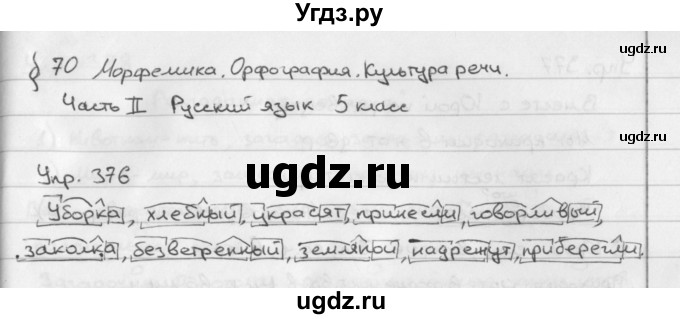 Угдз.ру
ugdz.ru
ugdz.ru
§ 70 Морфемика. Орфография. Культура речи.
Часть II Русский язык 5 класс
ugdz.ru
Упр. 376
ugdz.ru
ugdz.ru
Уборка, хлебный, украсят, принесли, говорливый,
заколка, безветренный, земляной, надрежут, приберегли.
ugdz.ru
ugdz.ru